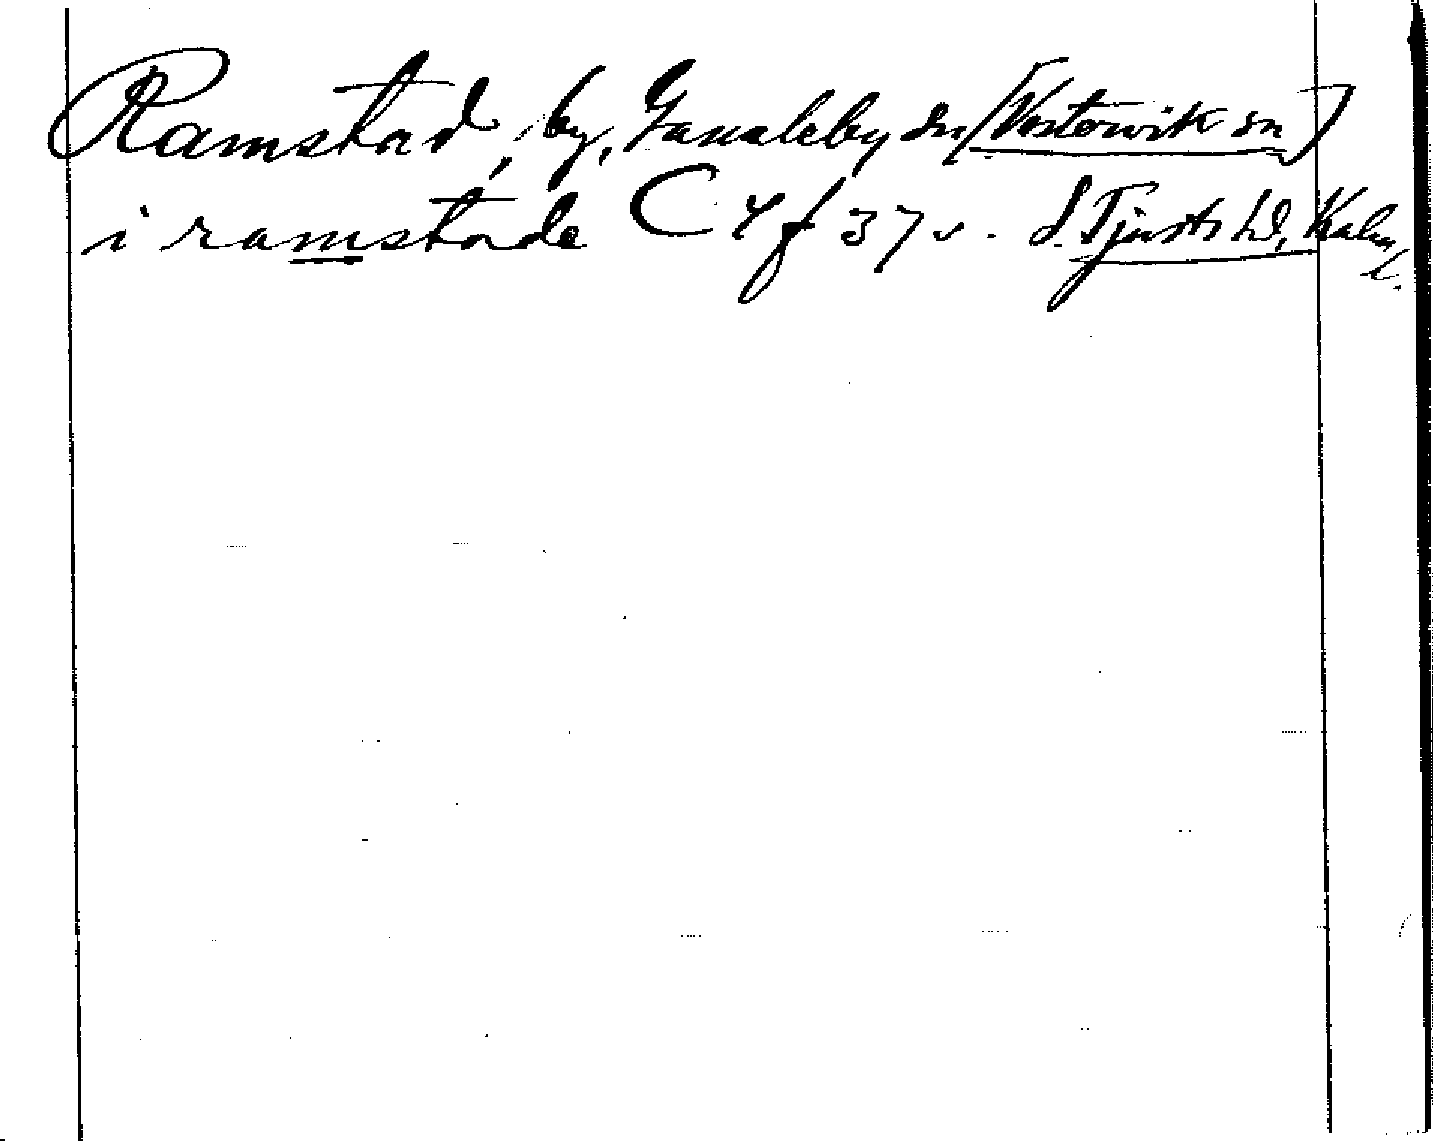 Ramstad, by, Gamleby sn (Västervik sn)
i ramstade C 4 f 37 v. S. Tjusts hd, Kalm. l.